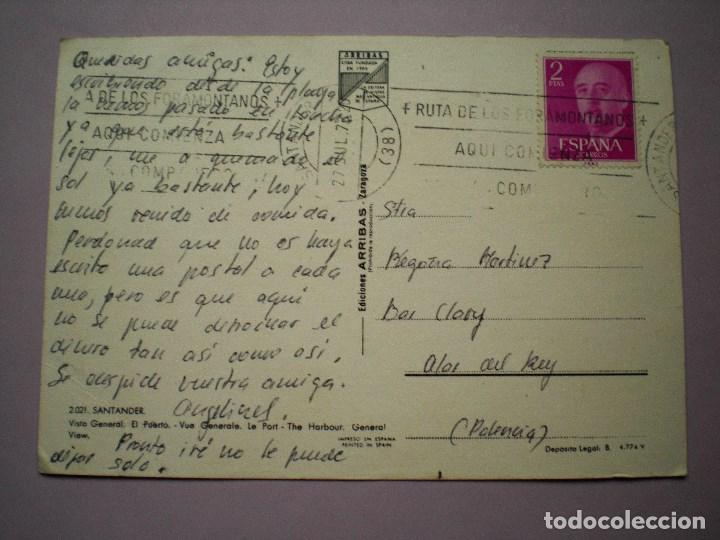 Queridas amigas: Estoy
escribiendo desde la playa
la hemos pasado en lancha
ya que está bastante
lejos, me a quemado el
sol ya bastante, hoy
hemos venido de comida.
Perdonad que no os haya
escrito una postal a cada
una, pero es que aquí
no se puede derrochar el
dinero tan así como así.
Se despide vuestra amiga.
Angelines.
Pronto iré no le puede
dejar solo.
2.021. SANTANDER.
Vista General. El Puerto. - Vue Generale. Le Port - The Harbour. General
View.
IMPRESO EN ESPAÑA
PRINTED IN SPAIN
ARRIBAS
CASA FUNDADA
EN 1905
Ediciones ARRIBAS - Zaragoza
(Prohibida la reproducción)
A DE LOS FORAMONTANOS +
AQUI COMIENZA
27 JUL. 7
(38)
+ RUTA DE LOS FORAMONTANOS +
AQUI COMIENZA
SANTANDER
2
PTAS
ESPAÑA
CORREOS
Srta
Begoña Martinez
Bar Clary
Alar del Rey
(Palencia)
Depósito Legal: B. 4.774 V
todocoleccion
todocoleccion.net